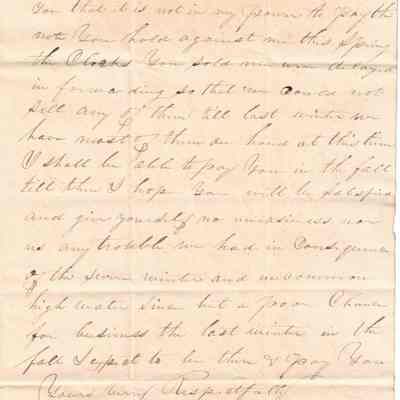 You that it is not in my power to pay the
note You hold against me this Spring
the Clocks You sold me were delayed
in forwarding so that we could not
sell any of them till last winter we
have most of them on hand at this time
I shall be able to pay You in the fall
till then I hope You will be Satisfied
and give yourself no uneasiness nor
us any trouble we had in Consequence
of the severe winter and uncommon
high water Since but a poor Chance
for business the last winter in the
fall I expect to be there & pay You
Yours very Respectfully